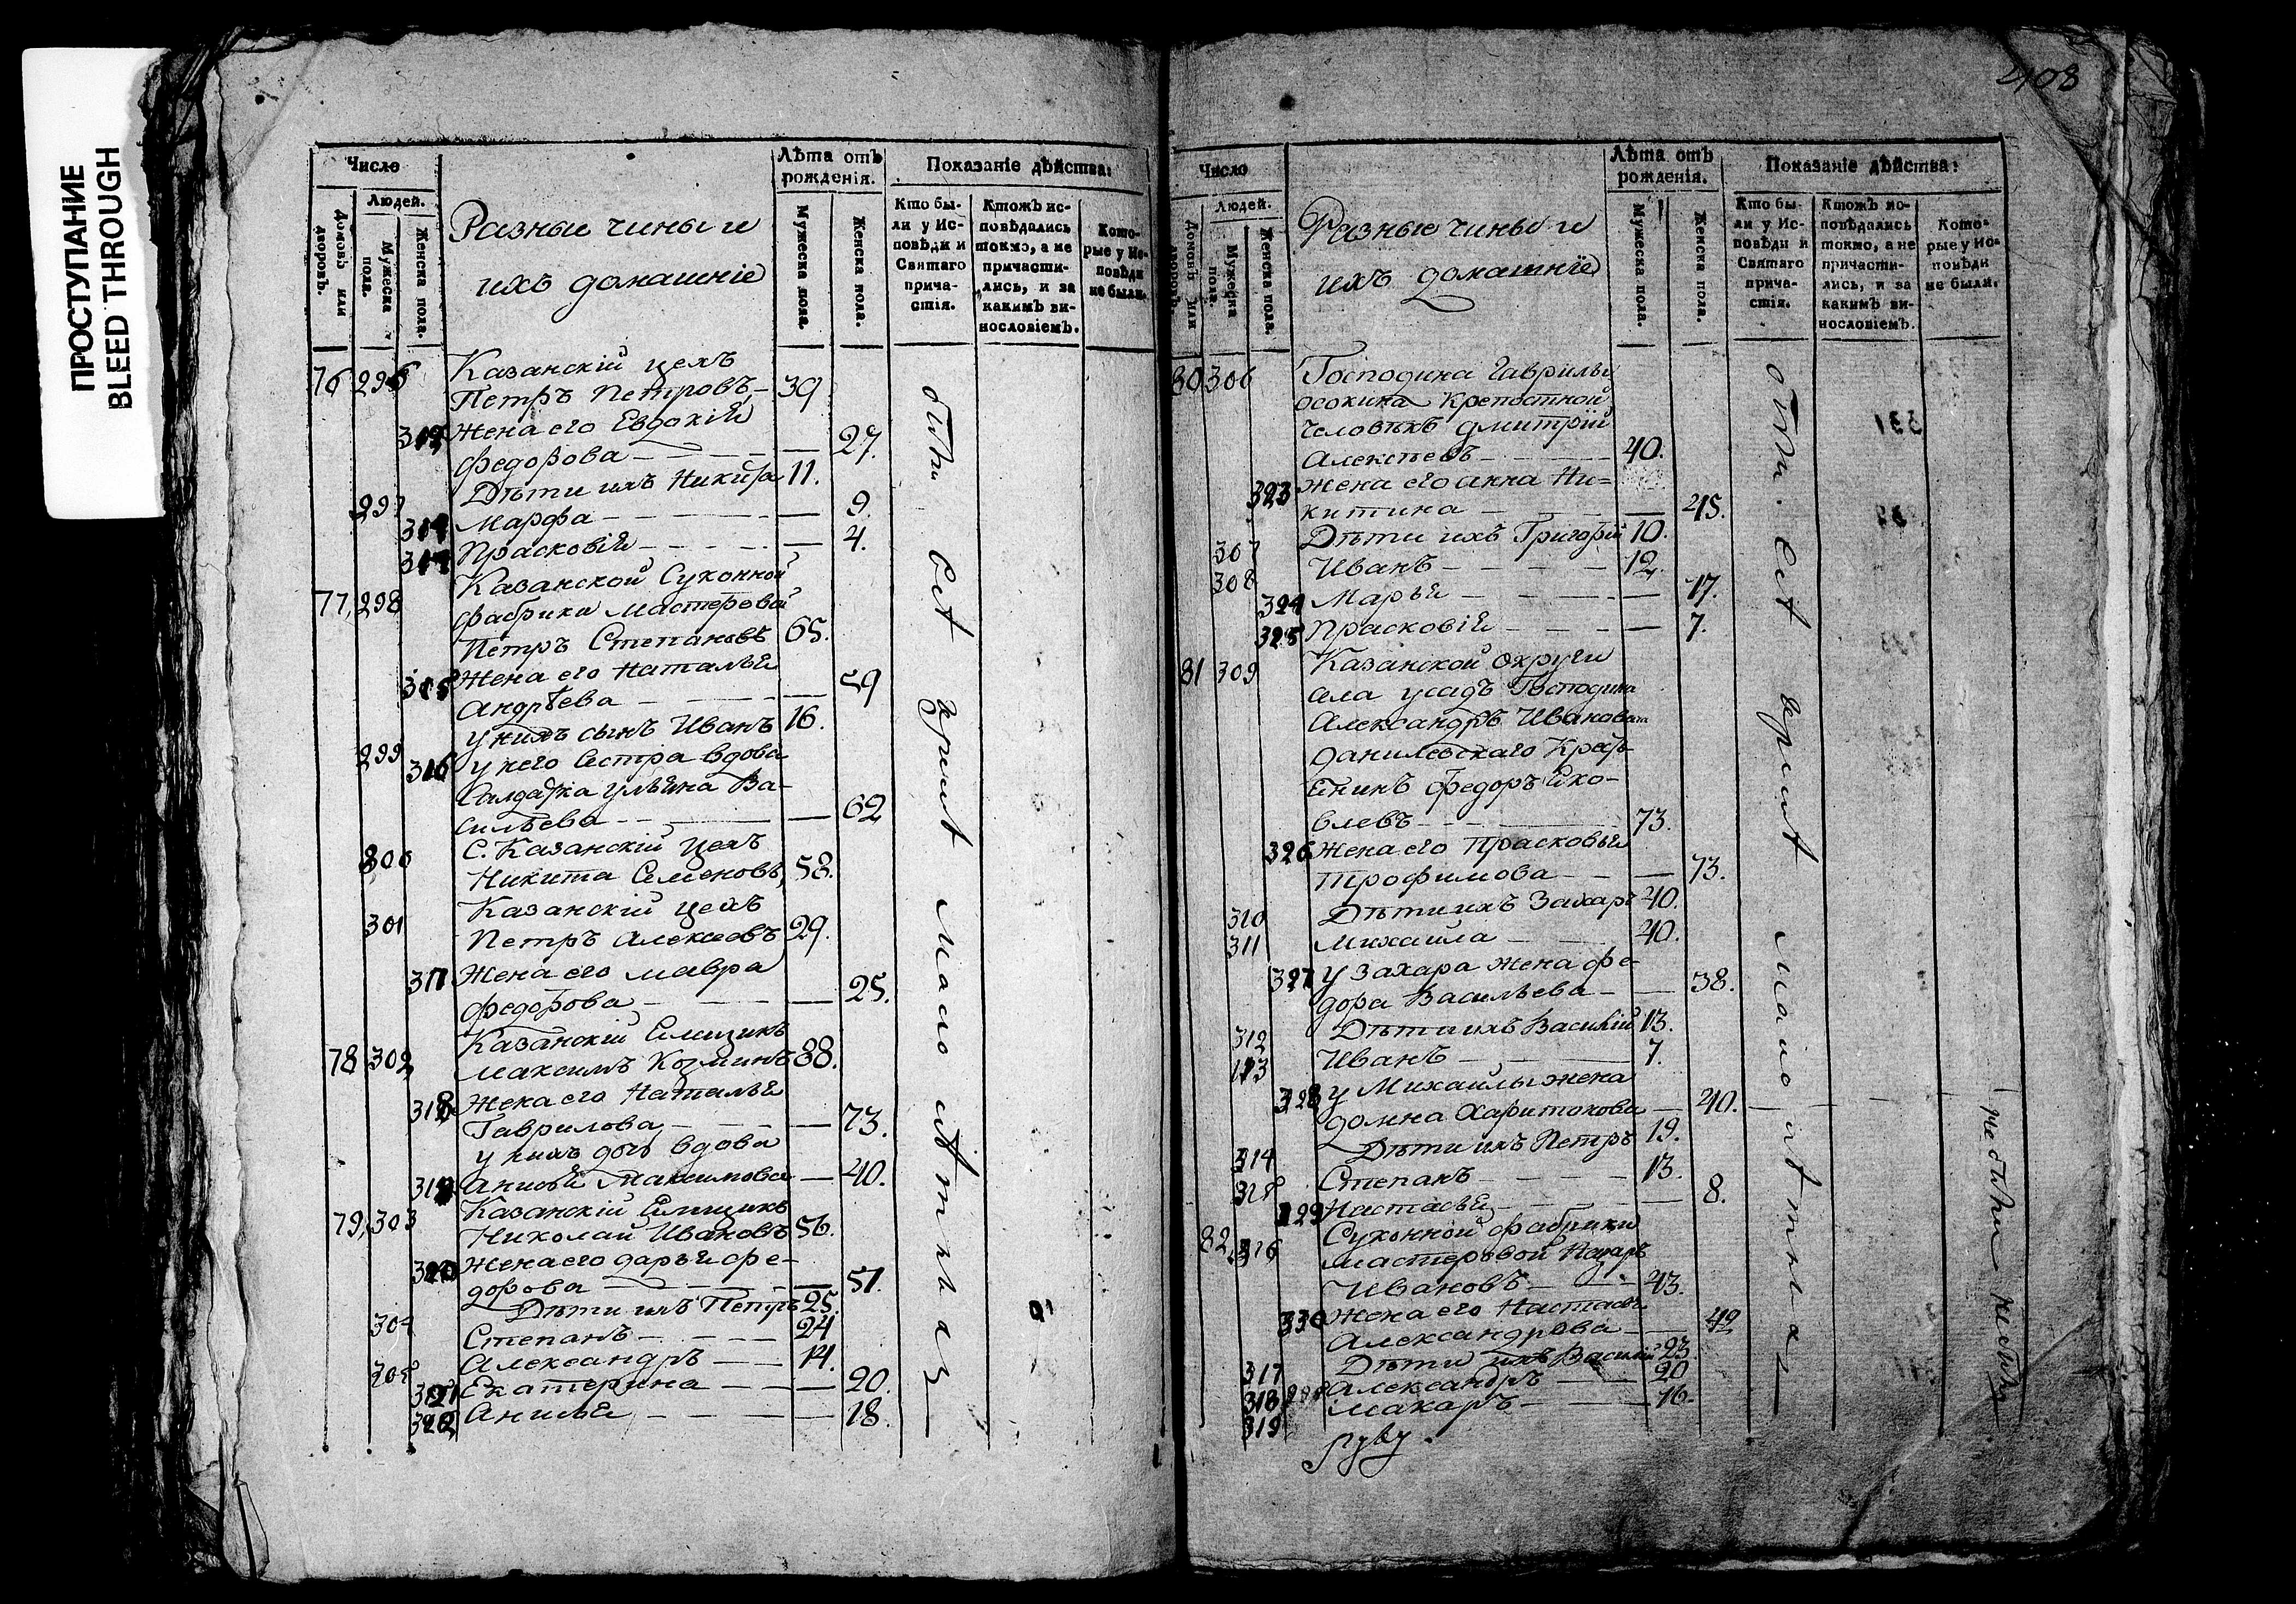 ПРОСТУПАНИЕ
BLEED THROUGH
Число
Людей.
Домовъ или дворовъ.
Мужеска пола.
Женска пола.
Разные чины и
ихъ домашніе
Лѣта отъ рожденія.
Мужеска пола.
Женска пола.
Показаніе дѣйства:
Кто бы-
ли у Ис-
повѣди и
Святаго
прича-
стія.
Ктожъ ис-
повѣдались
токмо, а не
причасти-
лись, и за
какимъ ви-
нословіемъ.
Кото-
рые у Ис-
повѣди
не были.
76 296 Казанскій цехъ
Петръ Петровъ 39
Жена его Евдокія
Федорова 27.
297 Дѣти ихъ Никита 11.
Марфа 9.
Прасковія 4.
Казанской Суконной
77, 298 фабрики мастеровой
Петръ Степановъ 65.
315 Жена его Наталья
Андрѣева 59
299 у нихъ сынъ Иванъ 16.
316 у него Сестра вдова
Салдатка Ульяна Ва-
сильева 62
300 С. Казанскій Цехъ
Никита Семеновъ, 58.
301 Казанскій Цехъ
Петръ Алексеевъ 29.
317 Жена его мавра
Федорова 25.
Казанскій
78 302 Максимъ Козминъ 88.
318 Жена его Наталья
Гаврилова 73.
у нихъ дочь вдова
319 Анисья Максимова 40.
Казанскій
79, 303 Николай Ивановъ 56.
320 Жена его дарья Фе-
дорова 51.
304 Дѣти ихъ Петръ 25.
Степанъ 24
305 Александръ 14.
321 Екатерина 20.
322 Анисья 18.
408
Число
Людей.
Домовъ или дворовъ.
Мужеска пола.
Женска пола.
Разные чины и
ихъ домашніе
Лѣта отъ рожденія.
Мужеска пола.
Женска пола.
Показаніе дѣйства:
Кто бы-
ли у Ис-
повѣди и
Святаго
прича-
стія.
Ктожъ ис-
повѣдались
токмо, а не
причасти-
лись, и за
какимъ ви-
нословіемъ.
Кото-
рые у Ис-
повѣди
не были.
80 306 Господина Гаврилы
осокина Крепостной
человѣкъ дмитрій
Алексѣевъ 40.
323 жена его анна Ни-
китина 45.
307 Дѣти ихъ Григорій 10.
308 Иванъ 12.
324 Марья 17.
325 Прасковія 7.
81 309 Казанской округи
села усадъ Господина
Александръ Ивановича
данилевскаго Крест-
янинъ Федоръ Яко-
влевъ 73.
326 Жена его Прасковья
трофимова 73.
310 Дѣти ихъ Захаръ 40.
311 Михаила 40.
327 у Захара жена Фе-
дора Васильева 38.
312 Дѣти ихъ Василій 13.
Иванъ 7.
328 у Михаилы жена
домна Харитонова 40.
314 Дѣти ихъ Петръ 19.
Степанъ 13.
329 Настасья 8.
82, 316 Суконной фабрики
мастеровой Назаръ
Ивановъ 43.
330 Жена его Настасья
Александрова 42
317 Дѣти ихъ Василій 23.
318 Александръ 20
319 Макаръ 16.